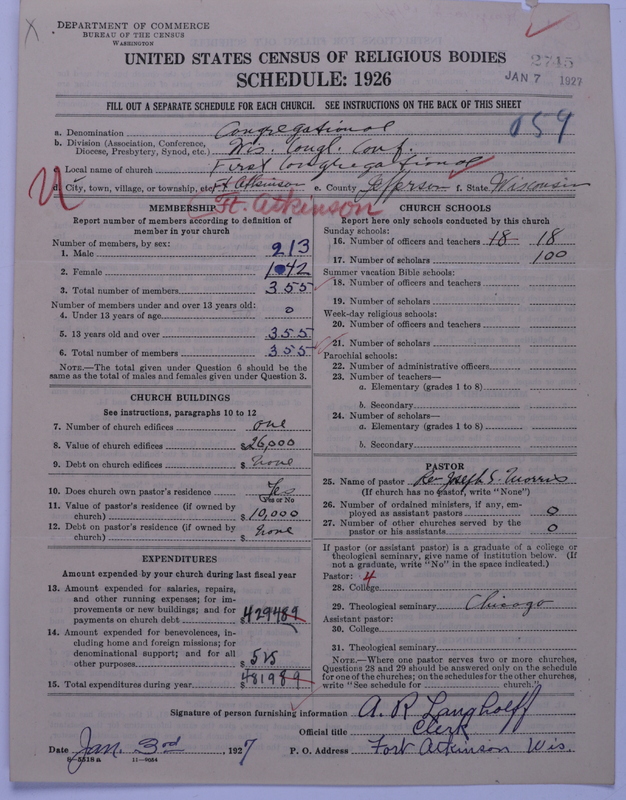 DEPARTMENT OF COMMERCE
BUREAU OF THE CENSUS
WASHINGTON
UNITED STATES CENSUS OF RELIGIOUS BODIES
2745
SCHEDULE: 1926
JAN 7 1927
FILL OUT A SEPARATE SCHEDULE FOR EACH CHURCH. SEE INSTRUCTIONS ON THE BACK OF THIS SHEET
a. Denomination Congregational
059
b. Division (Association, Conference, Diocese, Presbytery, Synod, etc.) Wis. Congl. Conf.
c. Local name of church First Congregational
d. City, town, village, or township, etc. Ft Atkinson e. County Jefferson f. State Wisconsin
Ft. Atkinson
MEMBERSHIP
Report number of members according to definition of
member in your church
Number of members, by sex:
1. Male 213
2. Female 142
3. Total number of members 355
Number of members under and over 13 years old:
4. Under 13 years of age 0
5. 13 years old and over 355
6. Total number of members 355
NOTE.—The total given under Question 6 should be
same as the total of males and females given under Question 3.
CHURCH BUILDINGS
See instructions, paragraphs 10 to 12
7. Number of church edifices one
8. Value of church edifices $26,000
9. Debt on church edifices $ None
10. Does church own pastor's residence Yes
Yes or No
11. Value of pastor's residence (if owned by
church) $10,000
12. Debt on pastor's residence (if owned by
church) $ None
EXPENDITURES
Amount expended by your church during last fiscal year
13. Amount expended for salaries, repairs,
and other running expenses; for im-
provements or new buildings; and for
payments on church debt $429489
14. Amount expended for benevolences, in-
cluding home and foreign missions; for
denominational support; and for all
other purposes $ 525
15. Total expenditures during year $481989
CHURCH SCHOOLS
Report here only schools conducted by this church
Sunday schools:
16. Number of officers and teachers 18 18
17. Number of scholars 100
Summer vacation Bible schools:
18. Number of officers and teachers
19. Number of scholars
Week-day religious schools:
20. Number of officers and teachers
21. Number of scholars
Parochial schools:
22. Number of administrative officers
23. Number of teachers—
a. Elementary (grades 1 to 8)
b. Secondary
24. Number of scholars—
a. Elementary (grades 1 to 8)
b. Secondary
PASTOR
25. Name of pastor Rev Joseph S. Morris
(If church has no pastor, write "None")
26. Number of ordained ministers, if any, em-
ployed as assistant pastors 0
27. Number of other churches served by the
pastor or his assistants 0
If pastor (or assistant pastor) is a graduate of a college or
theological seminary, give name of institution below. (If
not a graduate, write "No" in the space indicated.)
Pastor: 4
28. College
29. Theological seminary Chicago
Assistant pastor:
30. College
31. Theological seminary
NOTE.—Where one pastor serves two or more churches,
Questions 28 and 29 should be answered only on the schedule
for one of the churches; on the schedules for the other churches,
write "See schedule for church."
Signature of person furnishing information A. R Langholff
Official title Clerk
Date Jan. 3rd, 1927 P. O. Address Fort Atkinson Wis.
8-5518a 11-9064